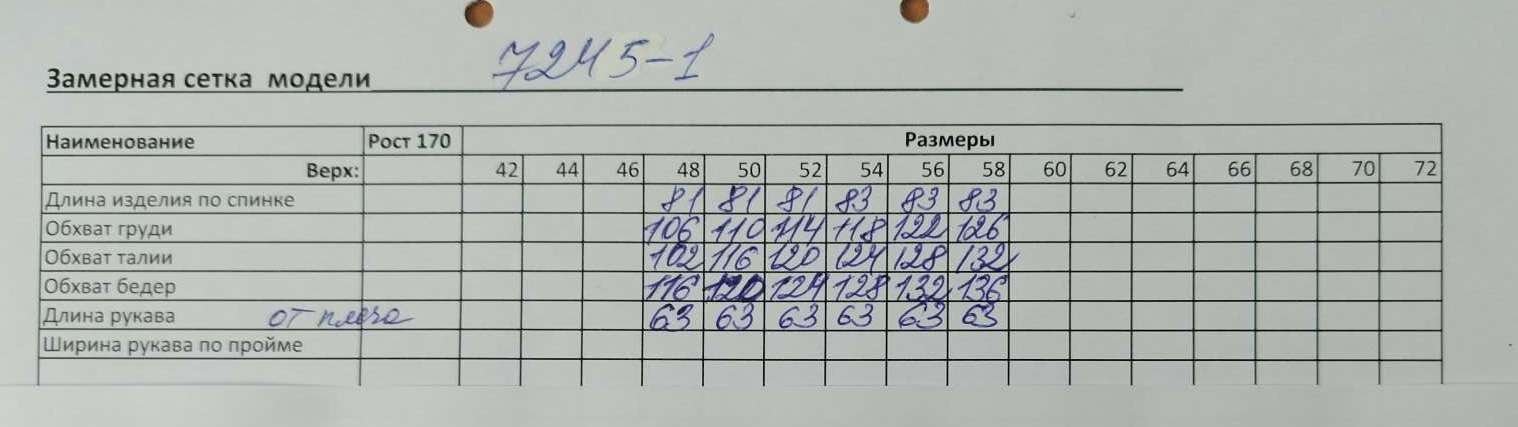 Замерная сетка модели 7245-1
Наименование Рост 170 Размеры
Верх: 42 44 46 48 50 52 54 56 58 60 62 64 66 68 70 72
Длина изделия по спинке 81 81 81 83 83 83
Обхват груди 106 110 114 118 122 126
Обхват талии 102 116 120 124 128 132
Обхват бедер 116 120 124 128 132 136
Длина рукава от плеча 63 63 63 63 63 63
Ширина рукава по пройме